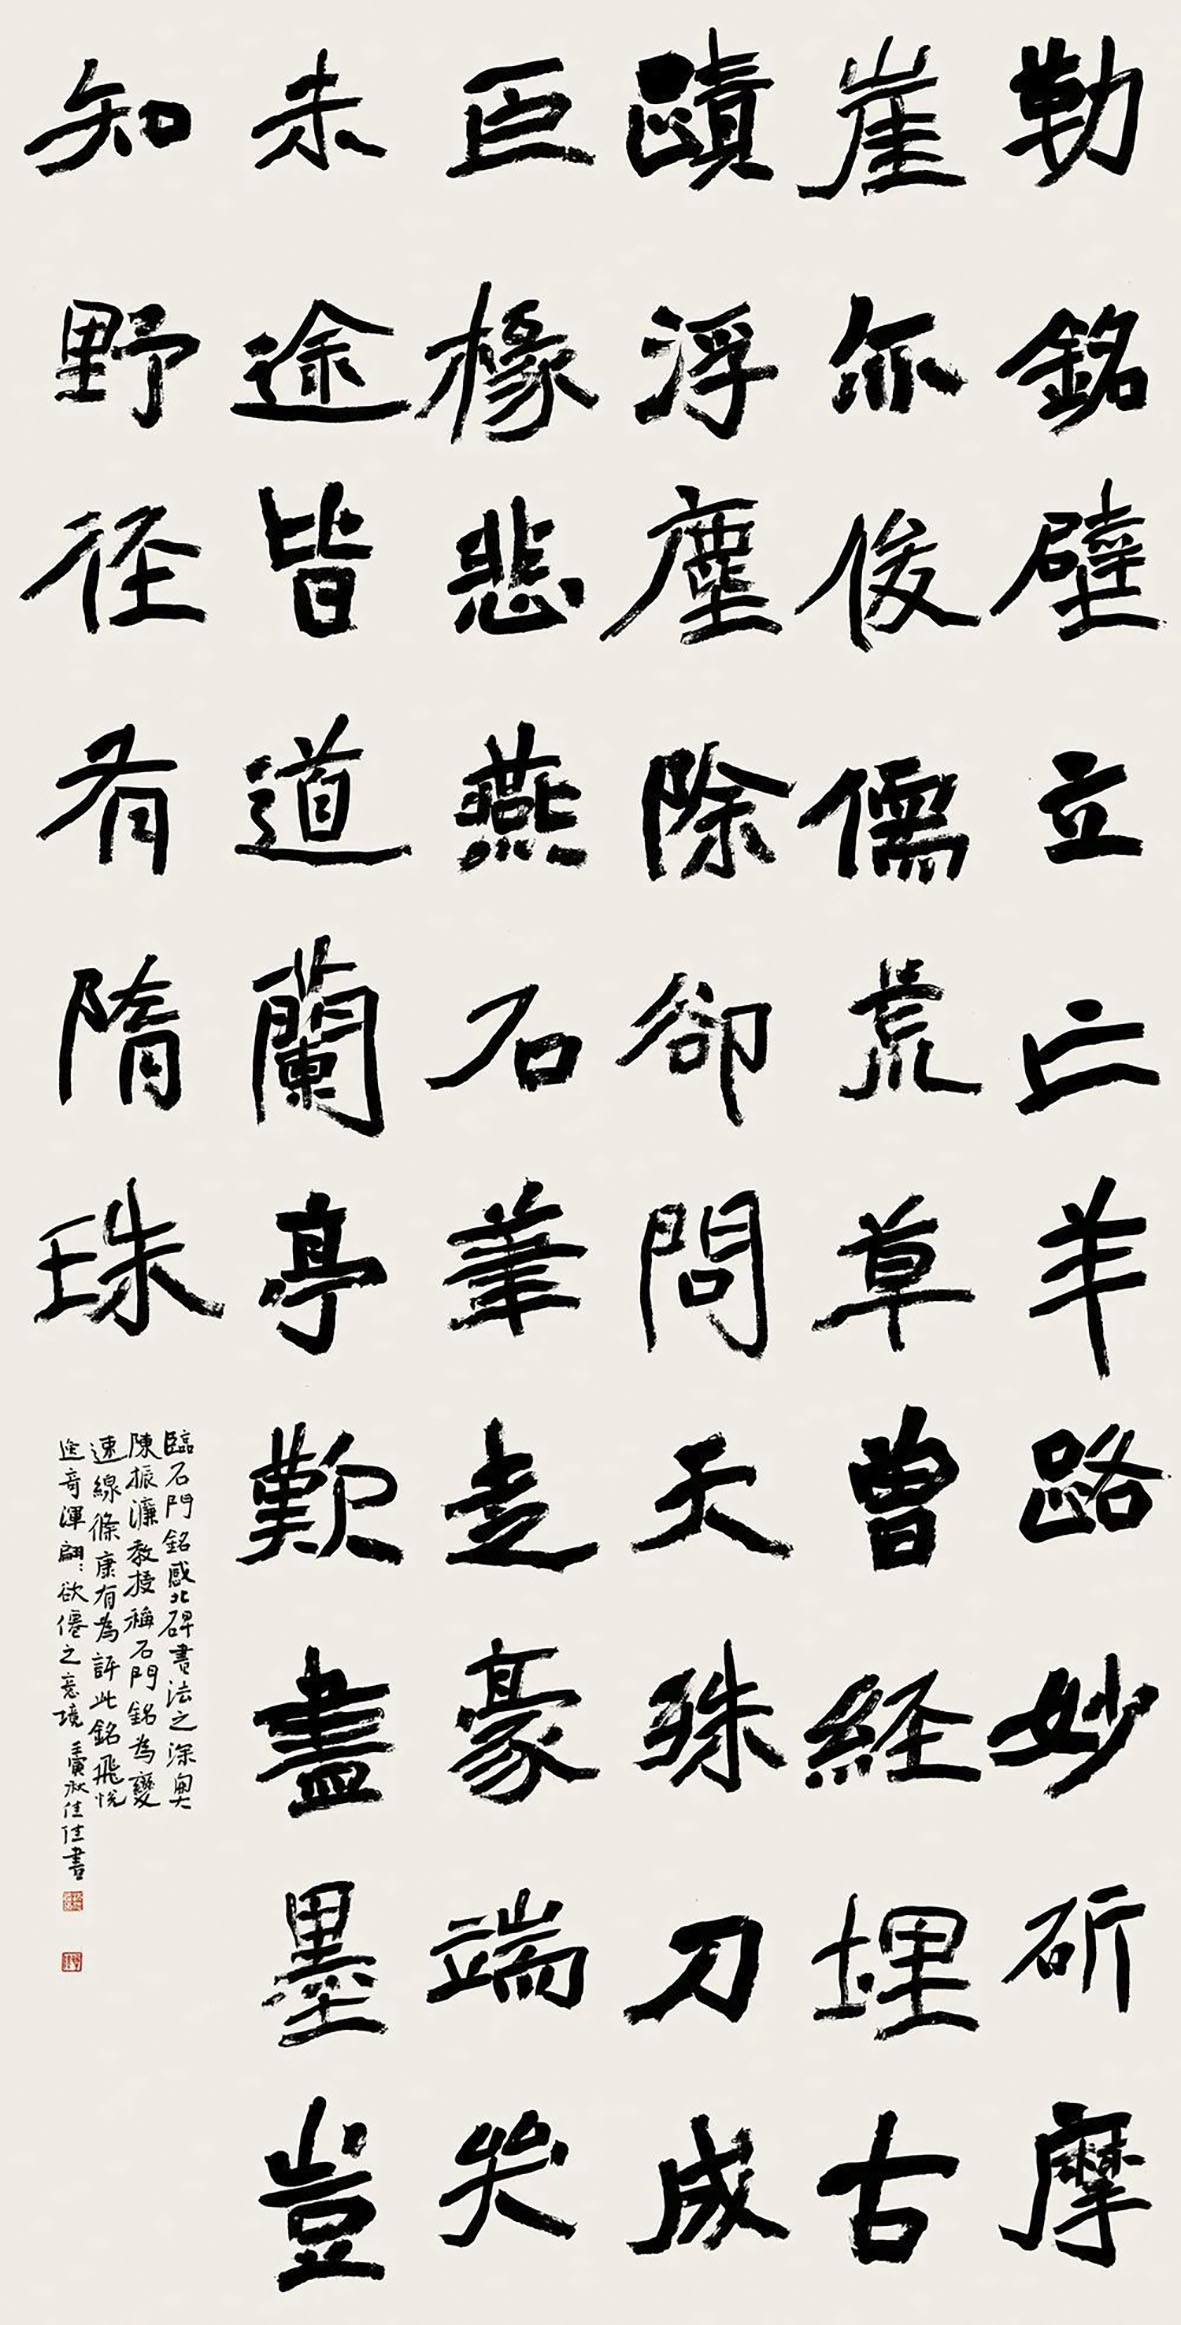 勒銘壁立亡羊路妙斫摩
崖亦俊儒荒草曾経埋古
蹟浮塵除卻問天殊刀成
巨椽悲燕石筆走豪端失
未途皆道蘭亭歎盡墨豈
知野徑有隋珠
臨石門銘感北碑書法之深奧
陳振濂教授稱石門銘為變
速線條康有為評此銘飛悅
逸奇渾翩〻欲僊之意境 秋佳佳書